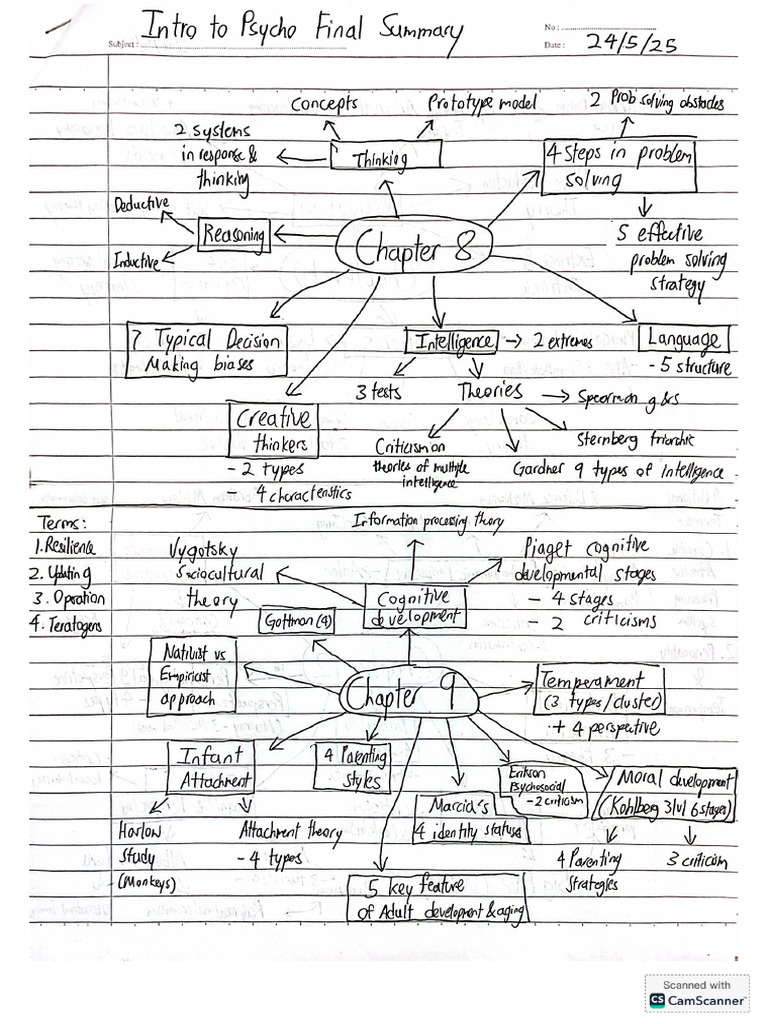 Intro to Psycho Final Summary
No :
Subject :
Date :
24/5/25
Concepts
Prototype model
2 Prob solving obstacles
2 systems
in response &
thinking
Thinking
4 Steps in problem
solving
Deductive
Reasoning
Inductive
Chapter 8
5 effective
problem solving
strategy
7 Typical Decision
Making biases
Intelligence → 2 extremes
Language
- 5 structure
3 tests
Theories → Spearman g & s
Creative
thinkers
- 2 types
- 4 characteristics
Criticism on
theories of multiple
intelligence
Sternberg triarchic
Gardner 9 types of Intelligence
Terms:
1. Resilience
2. Updating
3. Operation
4. Teratogens
Information processing theory
Vygotsky
Sociocultural
theory
Piaget cognitive
developmental stages
- 4 stages
- 2 criticisms
Cognitive
development
Gottman (4)
Nativist vs
Empiricist
approach
Chapter 9
Temperament
(3 types/cluster)
+ 4 perspective
Infant
Attachment
4 Parenting
styles
Erikson
Psychosocial
- 2 criticism
Moral development
(Kohlberg 3 lvl 6 stages)
Marcia's
4 identity statuse
Harlow
Study
(Monkeys)
Attachment theory
- 4 types
4 Parenting
Strategies
3 criticism
5 key feature
of Adult development & aging
Scanned with
CS CamScanner